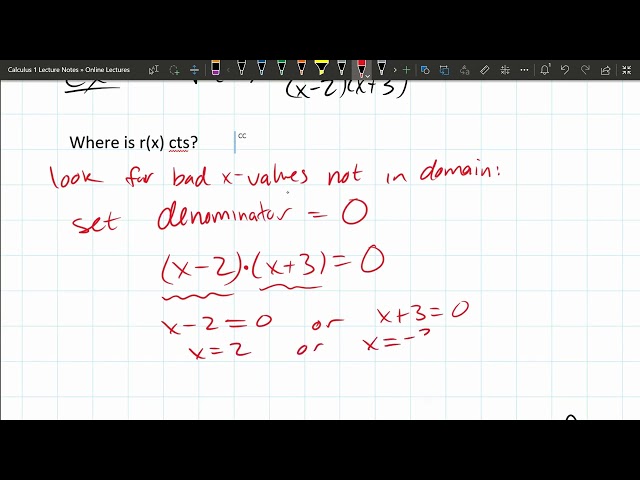 Calculus 1 Lecture Notes » Online Lectures
(x-2)(x+3)
Where is r(x) cts?
cc
look for bad x-values not in domain:
set denominator = 0
(x-2)·(x+3)=0
x-2=0 or x+3=0
x=2 or x=-